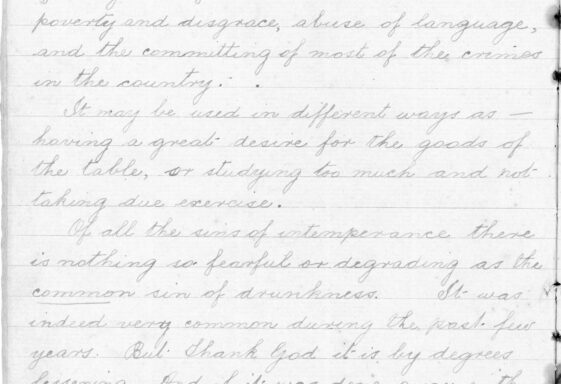 poverty and disgrace, abuse of language,
and the committing of most of the crimes
in the country.
It may be used in different ways as —
having a great desire for the goods of
the table, or studying too much and not
taking due exercise.
Of all the sins of intemperance there
is nothing so fearful or degrading as the
common sin of drunkness. It was
indeed very common during the past few
years. But Thank God it is by degrees
lessening. And if it was